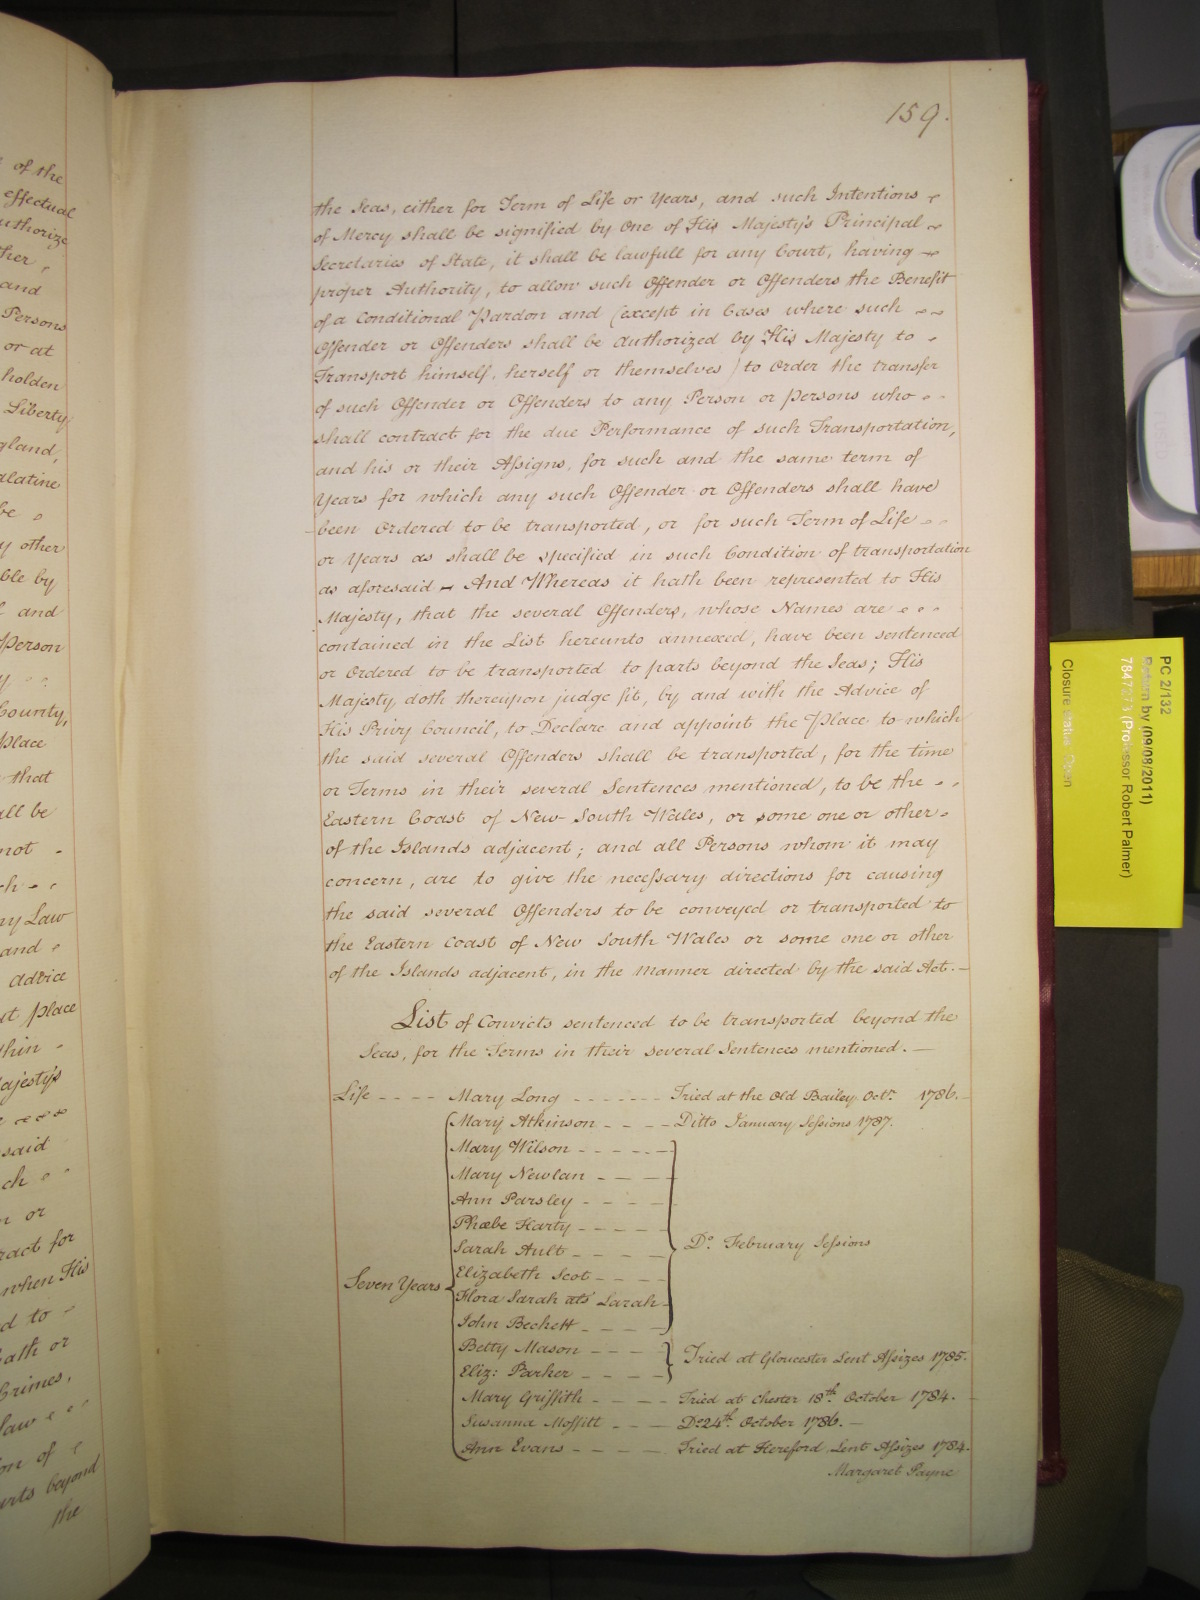 159.
the Seas, either for Term of Life or Years, and such Intentions
of Mercy shall be signified by One of His Majesty's Principal
Secretaries of State, it shall be lawfull for any Court, having
proper Authority, to allow such Offender or Offenders the Benefit
of a Conditional Pardon and (except in Cases where such
Offender or Offenders shall be authorized by His Majesty to
Transport himself, herself or themselves) to Order the transfer
of such Offender or Offenders to any Person or Persons who
shall contract for the due Performance of such Transportation,
and his or their Assigns, for such and the same term of
Years for which any such Offender or Offenders shall have
been Ordered to be transported, or for such Term of Life
or Years as shall be specified in such Condition of transportation
as aforesaid – And Whereas it hath been represented to His
Majesty, that the several Offenders, whose Names are
contained in the List hereunto annexed, have been sentenced
or Ordered to be transported to parts beyond the Seas; His
Majesty doth thereupon judge fit, by and with the Advice of
His Privy Council, to Declare and appoint the Place to which
the said several Offenders shall be transported, for the time
or Terms in their several Sentences mentioned, to be the
Eastern Coast of New South Wales, or some one or other
of the Islands adjacent; and all Persons whom it may
concern, are to give the necessary directions for causing
the said several Offenders to be conveyed or transported to
the Eastern Coast of New South Wales or some one or other
of the Islands adjacent, in the manner directed by the said Act.
List of Convicts sentenced to be transported beyond the
Seas, for the Terms in their several Sentences mentioned.
Life - - - - Mary Long - - - - - - - Tried at the Old Bailey Octr. 1786.
Mary Atkinson - - - - Ditto January Sessions 1787.
Mary Wilson - - - - - -
Mary Newlan - - - -
Ann Parsley - - - -
Phœbe Harty - - - -
Sarah Ault - - - - Do. February Sessions
Elizabeth Scot - - - -
Seven Years
Flora Sarah als Larah
John Beckett - - - -
Betty Mason - - - - Tried at Gloucester Lent Assizes 1785.
Eliz: Parker - - - -
Mary Griffith - - - - Tried at Chester 18th. October 1784.
Susanna Moffitt - - - Do. 24th. October 1786.
Ann Evans - - - - Tried at Hereford Lent Assizes 1784.
Margaret Payne
of the
effectual
authorize
ther
and
Persons
or at
holden
Liberty
gland,
alatine
be
y other
ble by
and
Person
County,
Place
that
all be
not
ny Law
and
advice
place
thin
ajesty's
said
n or
ract for
when His
d to
ath or
Crimes,
Law
on of
arts beyond
the
PC 2/132
Return by (09/08/2011)
(Professor Robert Palmer)
Closure status Open